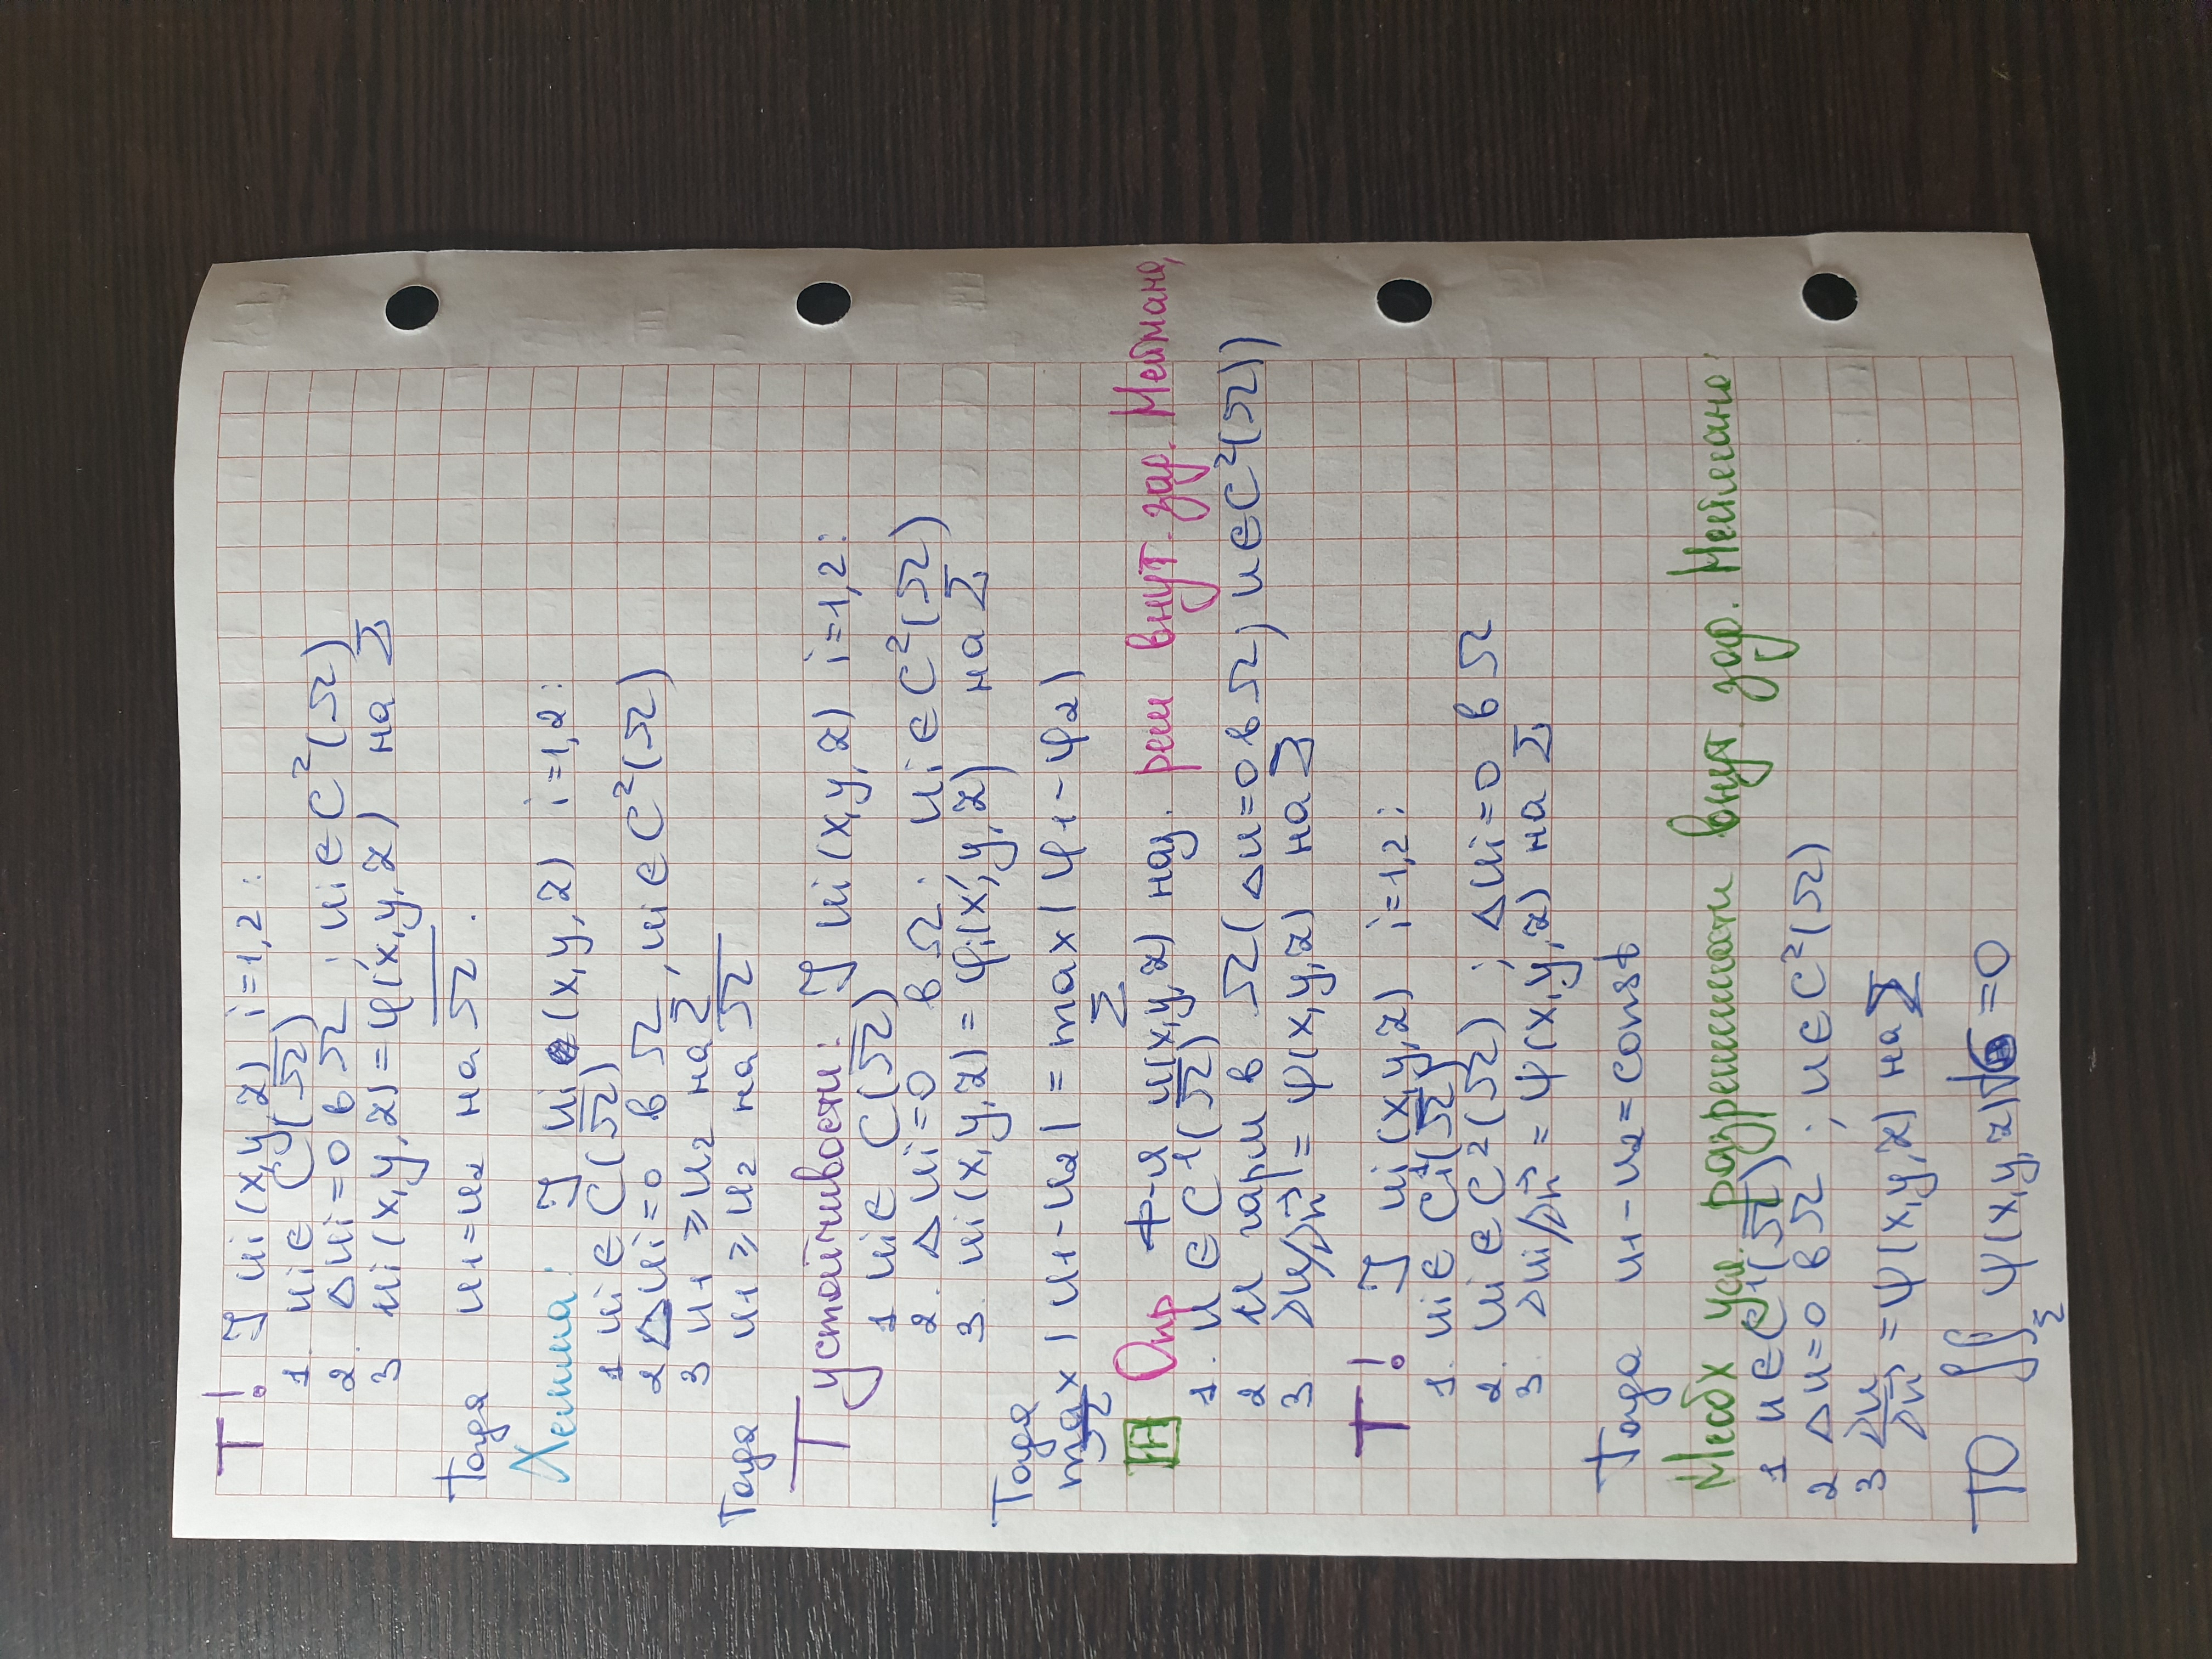 Т! ∃ ui(x,y,z) i=1,2:
1. ui∈ C(Ω̅)
2. Δui=0 в Ω; ui∈C²(Ω)
3 ui(x,y,z)=φ(x,y,z) на Σ
Тогда u1=u2 на Ω̅.
Лемма: ∃ ui(x,y,z) i=1,2:
1 ui∈C(Ω̅)
2 Δui=0 в Ω, ui∈C²(Ω)
3 u1≥u2 на Σ
Тогда u1≥u2 на Ω̅
Т устойчивости: ∃ ui(x,y,z) i=1,2:
1 ui∈ C(Ω̅)
2. Δui=0 в Ω; ui∈C²(Ω)
3. ui(x,y,z)=φi(x,y,z) на Σ
Тогда
max |u1-u2| = max|φ1-φ2|
Ω̅ Σ
H Опр ф-я u(x,y,z) наз. реш внут. зад. Неймана,
1. u∈C¹(Ω̅)
2 u гарм в Ω(Δu=0 в Ω) u∈C²(Ω))
3 ∂u/∂n⃗ = ψ(x,y,z) на Σ
Т! ∃ ui(x,y,z) i=1,2:
1. ui∈C¹(Ω̅)
2. ui∈C²(Ω); Δui=0 в Ω
3. ∂ui/∂n⃗=ψ(x,y,z) на Σ
Тогда u1-u2=const
Необх усл. разрешимости внут. зад. Неймана
1 u∈C¹(Ω̅)
2 Δu=0 в Ω; u∈C²(Ω)
3 ∂u/∂n⃗ =ψ(x,y,z) на Σ
ТО ∬Σ ψ(x,y,z)d =0